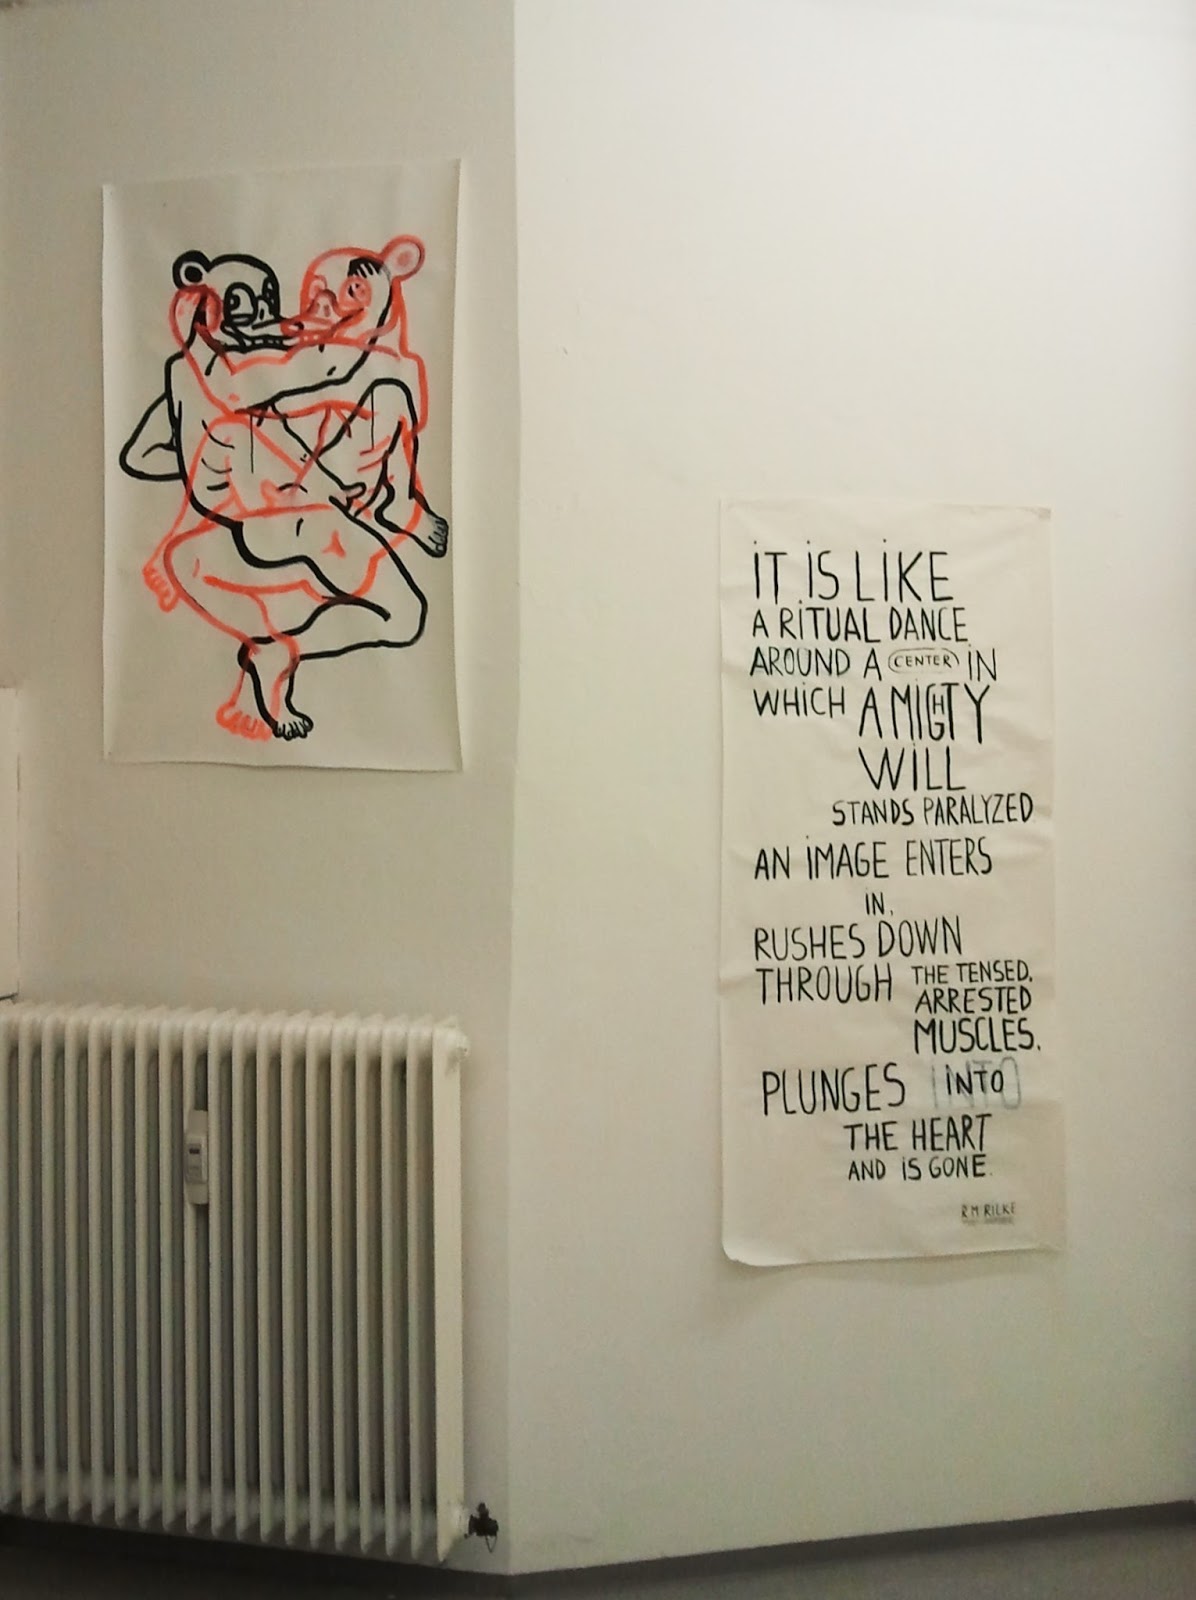 IT IS LIKE
A RITUAL DANCE
AROUND A CENTER IN
WHICH A MIGHTY
WILL
STANDS PARALYZED
AN IMAGE ENTERS
IN,
RUSHES DOWN
THROUGH THE TENSED,
ARRESTED
MUSCLES,
PLUNGES INTO
THE HEART
AND IS GONE.
R M RILKE